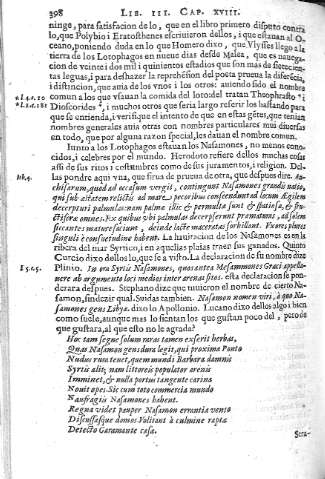 398 LIB. III. CAP. XVIII.
ninge, para satisfacion de lo, que en el libro primero disputo contra
lo, que Polybio i Eratosthenes escriuieron dellos, i que estauan al O-
ceano, poniendo duda en lo que Homero dixo, que Vlysses llego a la
tierra de los Lotophagos en nueue dias desde Malea, que es nauega-
cion de veinte i dos mil i quinientos estadios que son mas de setecien-
tas leguas, i para deshazer la reprehēsion del poeta prueua la diferēcia,
i distincion, que auia de los vnos i los otros: auiendo sido el nombre
comun a los que vsauan la comida del lotodel tratan Theophrasto
Dioscorides, i muchos otros que seria largo referir los bastando para
que se entienda, i verifique el intento de que en estas gētes, que tenian
nombres generales auia otras con nombres particulares mui diuersas
en todo, que por alguna razon special, les dauan el nombre comun.
Iunto a los Lotophagos estauan los Nasamones, no menos cono-
cidos, i celebres por el mundo. Herodoto refiere dellos muchas cosas
assi de sus ritos i costumbres como de sus juramentos, i religion. Del-
las pondre aqui vna, que sirua de prueua de otra, que despues dire.
lib. 4.
chisarum, quod ad occasum vergit, contingunt Nasamones grandis natio,
qui sub æstatem relictis ad mare pecoribus conscendunt ad locum Ægilem
decerpturi palmulas
singuli è consuetudine habent. La hauitacion de los Nasamones es en la
ribera del mar Syrtico, i en aquellas plaias traen sus ganados. Quinto
Curcio dixo dellos lo, que se a visto. La declaracion de su nombre dize
l 5. c. 5. Plinio. In ora Syrtis Nasamones, quos antea Mesammones Graci appella-
uere ab argumento loci medios inter arenas sitos. esta declaracion se pon-
derara despues. Stephano dize que tuuieron el nombre de cierto Nasa-
mon, sin dezir qual. Suidas tambien. Nasamon nomen viri, à quo Na-
samones gens Libya. dixo lo Apollonio. Lucano dixo dellos algo i bien
como suele, aunque mas lo sientan los que gustan poco del, pero de
que gustara, al que esto no le agrada?
Hoc tam segne solum raras tamen exserit herbas,
Quas Nasamon gens dura legit, qui proxima Ponto
Nudus rura tenet, quem mundi Barbara damnis
Syrtis alit; nam littoreis populator arenis
Imminet, & nulla portus tangente carina
Nouit opes. Sic cum toto commercia mundo
Naufragiis Nasamones habent.
Regna videt pauper Nasamon errantia vento
Discussasque domos: Volitant à culmine rapta
Detecto Garamante casa.